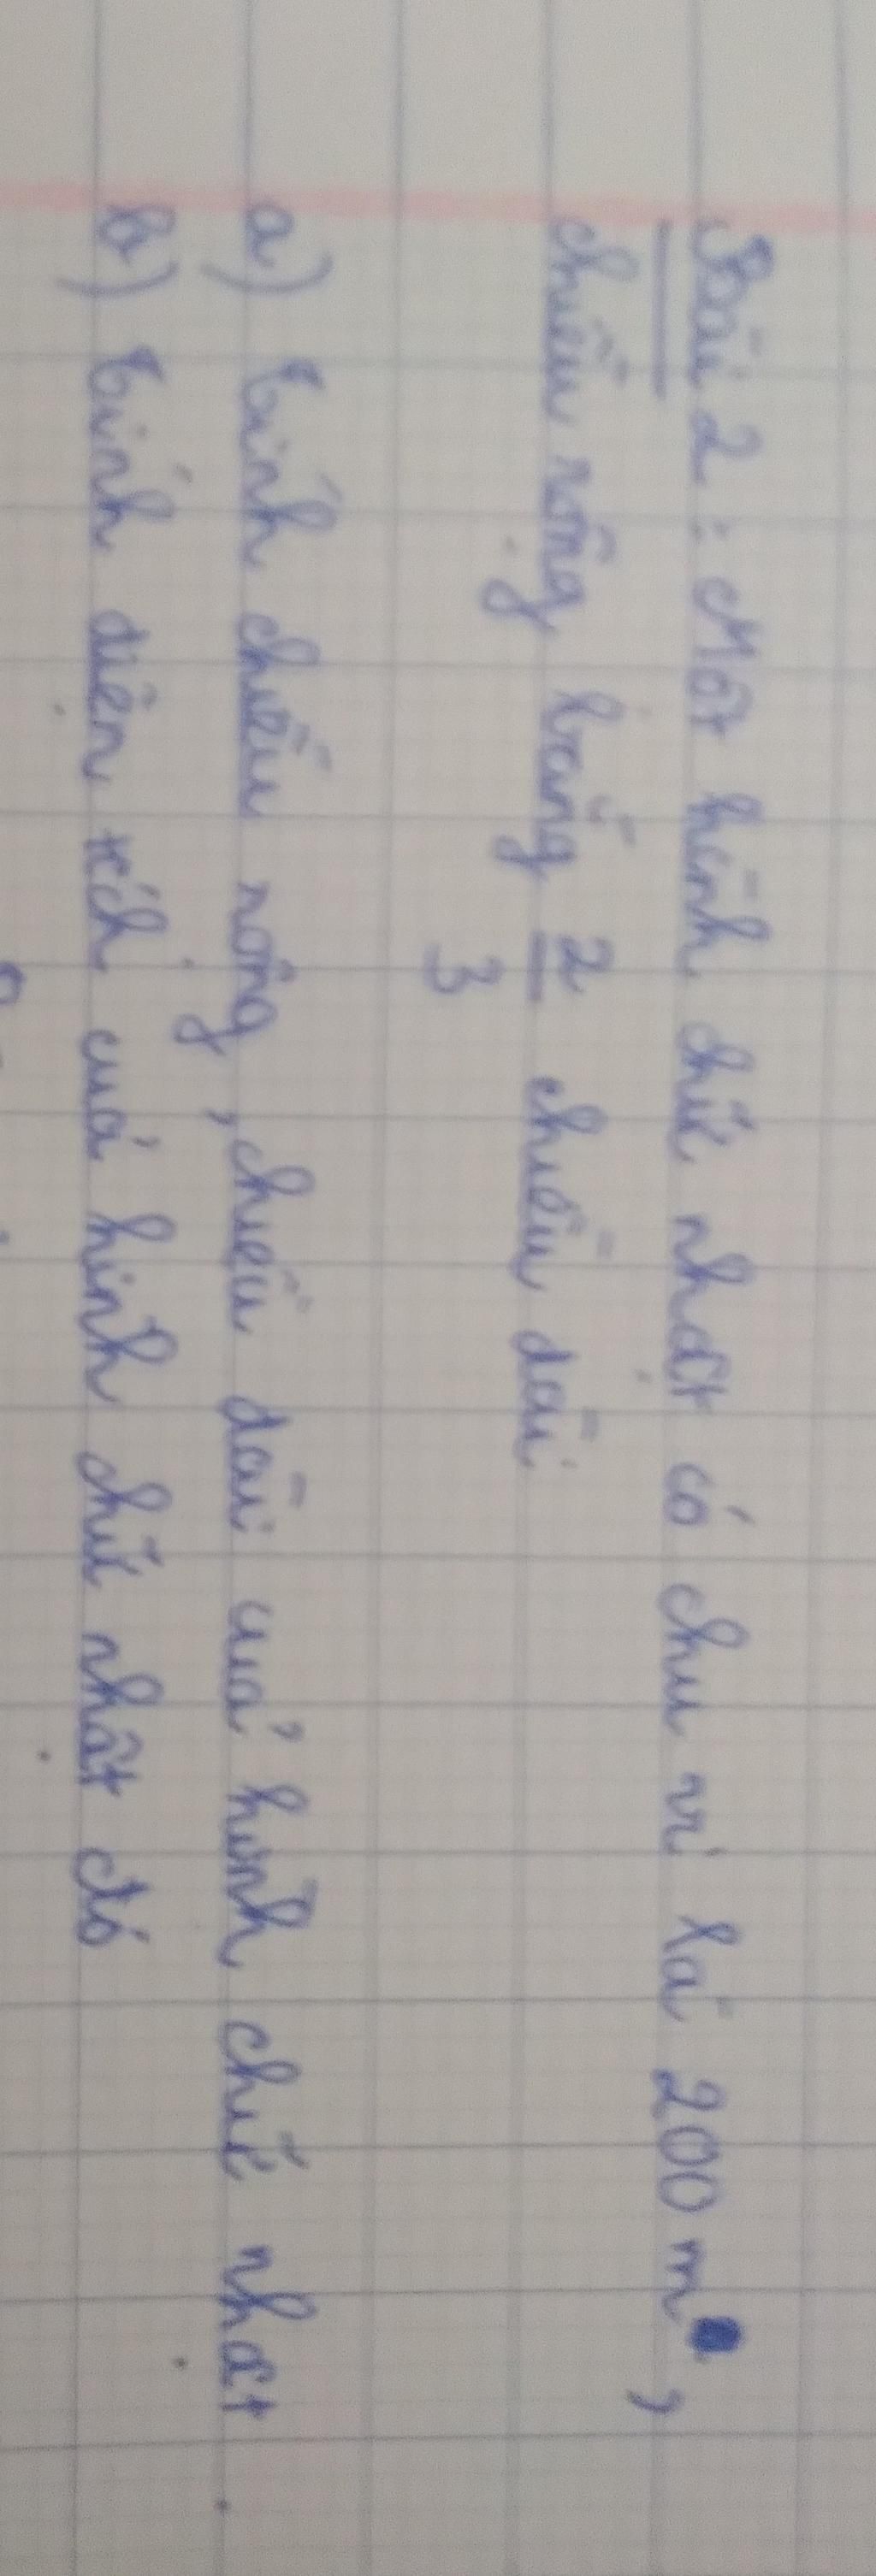 Bài 2 : Một hình chữ nhật có chu vi là 200 m ,
chiều rộng bằng 2/3 chiều dài
a) tính chiều rộng , chiều dài của hình chữ nhật
b) tính diện tích của hình chữ nhật đó